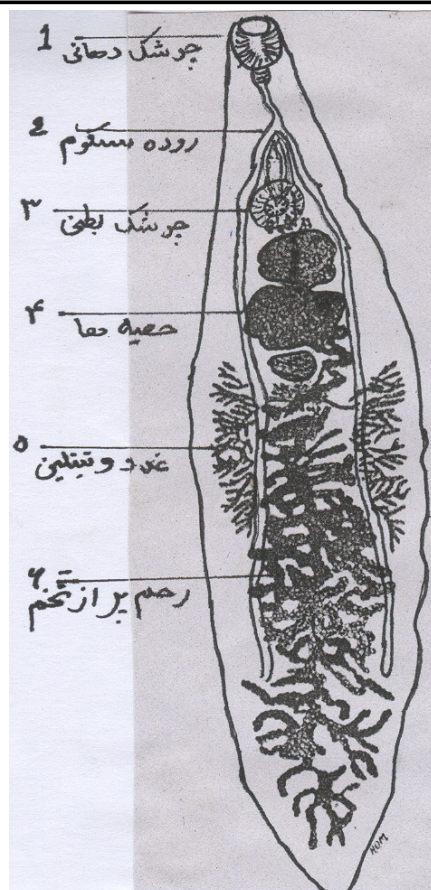 1 چوشک دهانی
2 روده سکوم
۳ چوشک بطنی
۴ خصیه ها
۵ غدد ویتیلین
۶ رحم پر از تخم
HUM